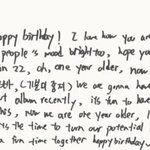 happy birthday! I have how you are
people's mood bright too, hope you
in 22, oh, one year older, now
we are gonna have
out album recently, it's fun to have
this, now we are one year older, I
the time to turn our potential
a fun time together happy birthday